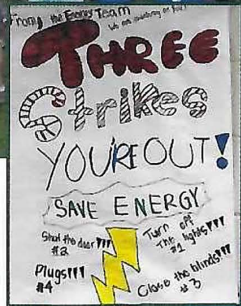 From the Energy Team
We are watching on you!
THREE
Strikes
YOU'RE OUT!
SAVE ENERGY
Shut the door!!!
#2
Turn off
The lights!!!
#1
Plugs!!!
#4
Close the blinds!!!
#3